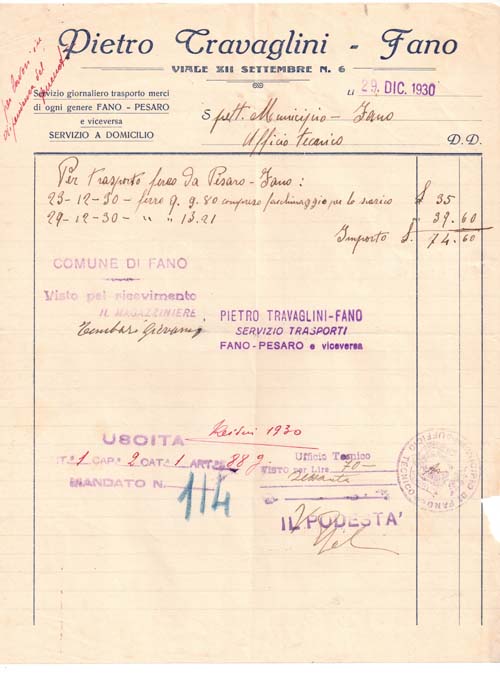 Pietro Travaglini - Fano
VIALE XII SETTEMBRE N. 6
per lavori in
dipendenza del
Servizio giornaliero trasporto merci
di ogni genere FANO - PESARO
e viceversa
SERVIZIO A DOMICILIO
li 29. DIC. 1930
Spett. Municipio - Fano
Ufficio tecnico
D.D.
Per trasporto ferro da Pesaro - Fano:
23-12-30 - ferro q. 9.80 compreso facchinaggio per lo scarico £ 35
29-12-30 - " " 13.21 " 39.60
Importo £. 74.60
COMUNE DI FANO
Visto pel ricevimento
IL MAGAZZINIERE
Tombari Giovanni
PIETRO TRAVAGLINI-FANO
SERVIZIO TRASPORTI
FANO-PESARO e viceversa
Residui 1930
USCITA
TIT. 1 CAP. 2 CAT. 1 ART. 88 g.
MANDATO N. 114
Ufficio Tecnico
VISTO per Lire 70-
settanta
IL PODESTA'